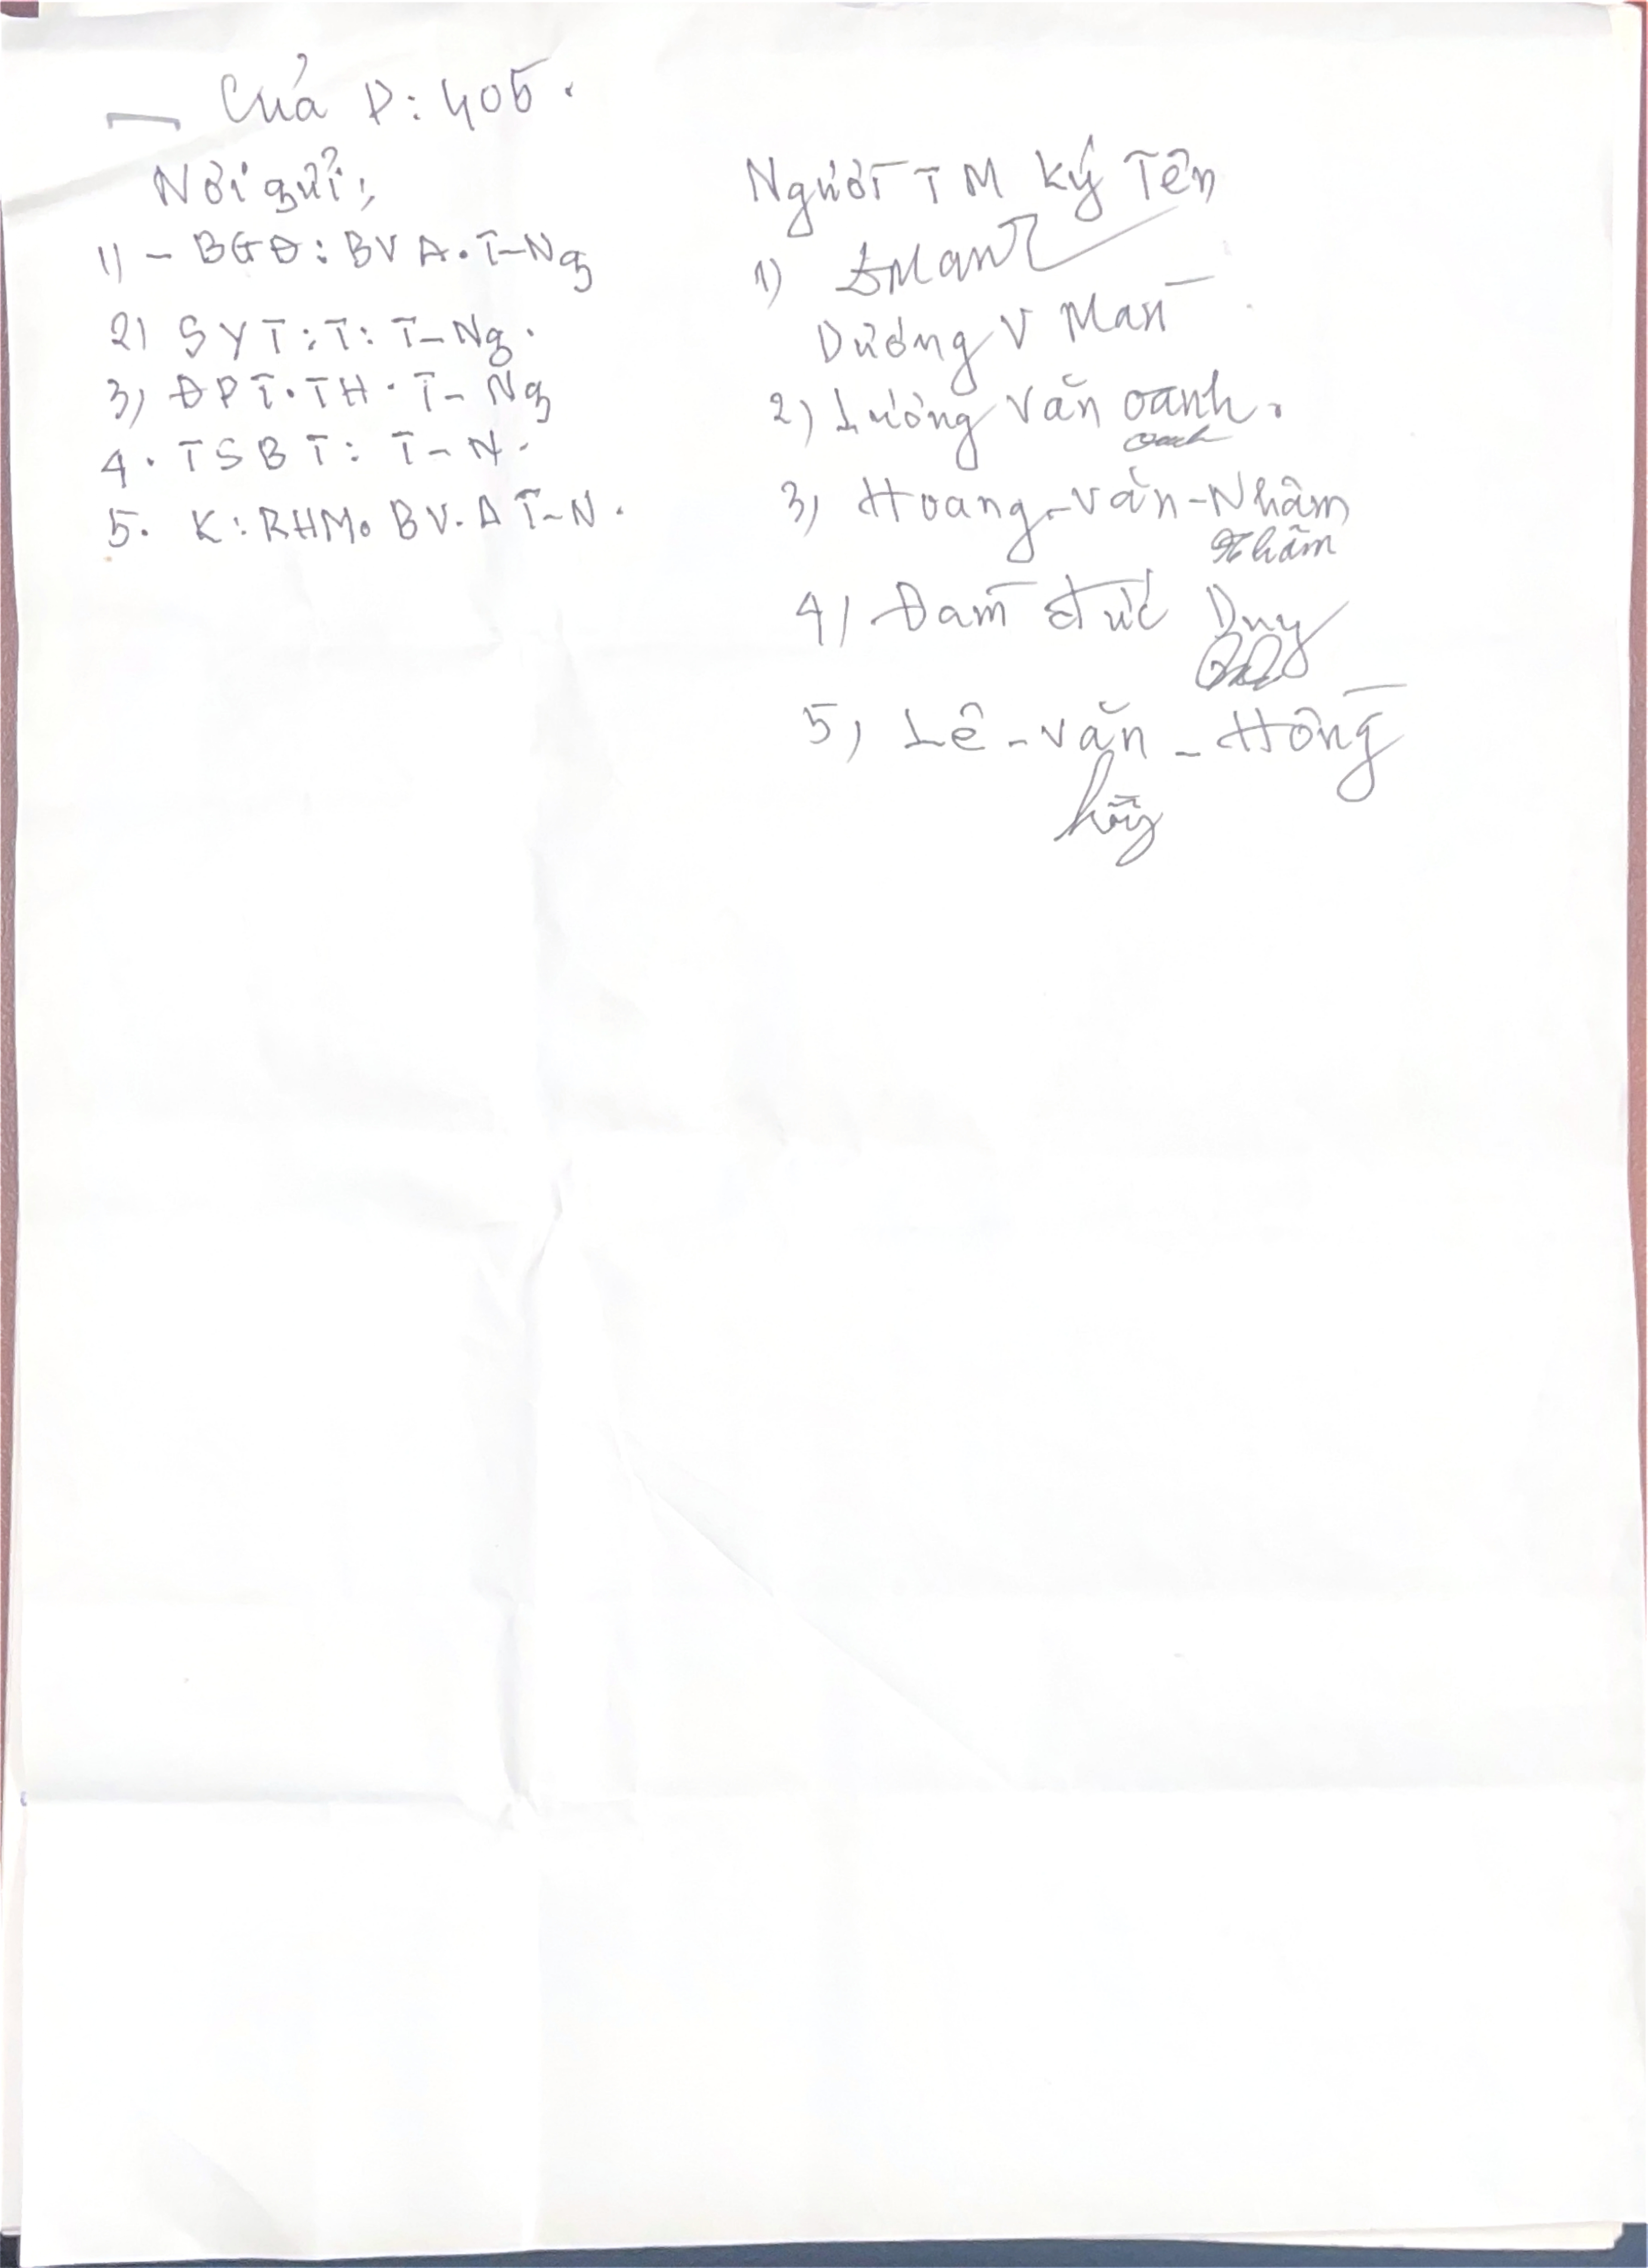 Của P: 405.
Nơi gửi:
1) - BGĐ: BV A. T-Ng
2) SYT: T: T-Ng.
3) ĐPT. TH. T- Ng
4. TSBT: T-N.
5. K: RHM. BV. A T-N.
Người TM ký Tên
1)
Dương V Man
2) Lương Văn oanh.
oanh
3) Hoang-văn-Nhâm
Nhâm
4) Đam đức Duy
5) Lê-văn-Hông